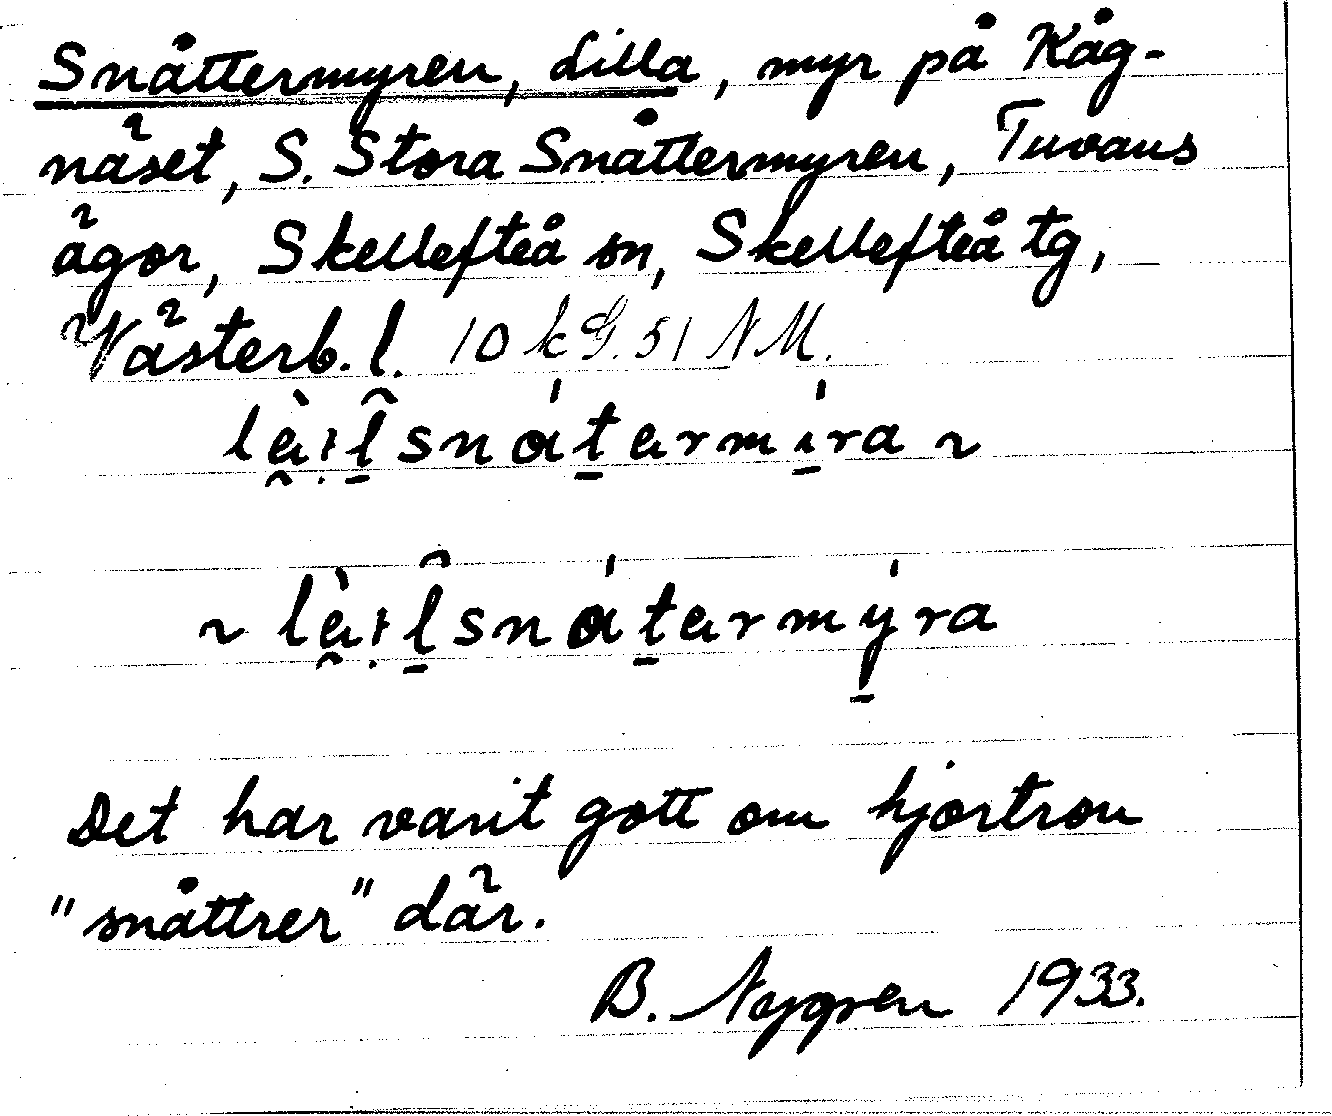 Snåttermyren, Lilla, myr på Kåg-
näset, S. Stora Snåttermyren, Tuvans
ägor, Skellefteå sn, Skellefteå tg,
Västerb. l. 10 kG. 51 NM.
Det har varit gott om hjortron
"snåttrer" där.
B. Nygren 1933.